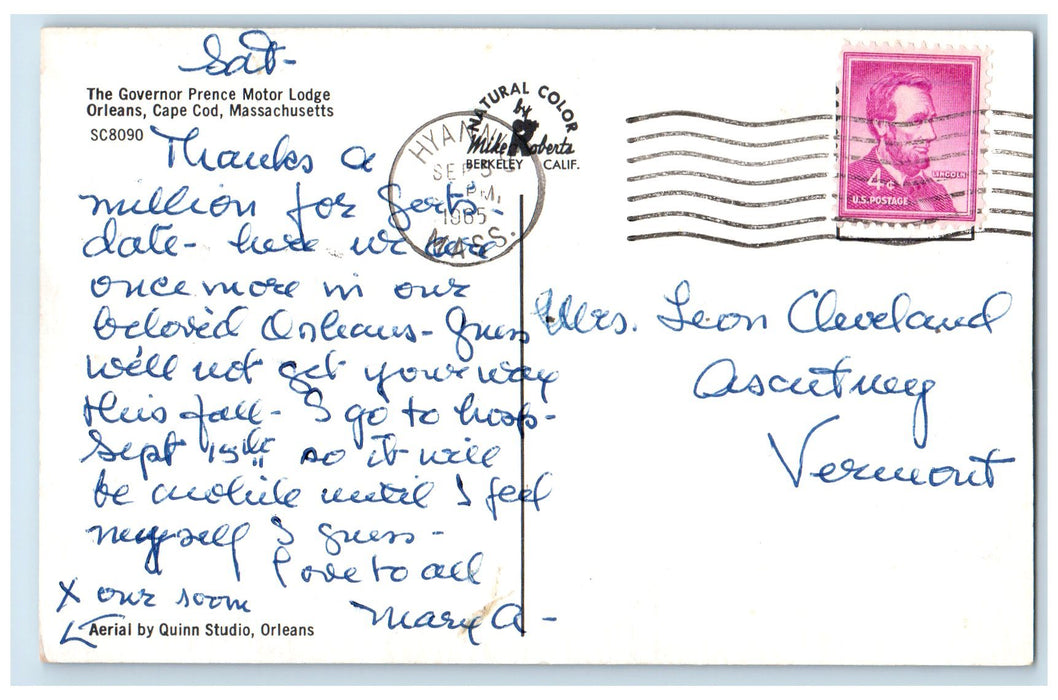 Sat-
The Governor Prence Motor Lodge
Orleans, Cape Cod, Massachusetts
SC8090
Thanks a
million for
date - here we are
once more in our
beloved Orleans - Guess
we'll not get your way
this fall - I go to hosp-
Sept 15th so it will
be awhile until I feel
myself I guess -
Love to all
Mary A -
X our room
Aerial by Quinn Studio, Orleans
NATURAL COLOR
by
Mike Roberts
BERKELEY CALIF.
HYANNIS
SEP
PM
1965
MASS.
LINCOLN
4¢
U.S. POSTAGE
Mrs. Leon Cleveland
Ascutney
Vermont